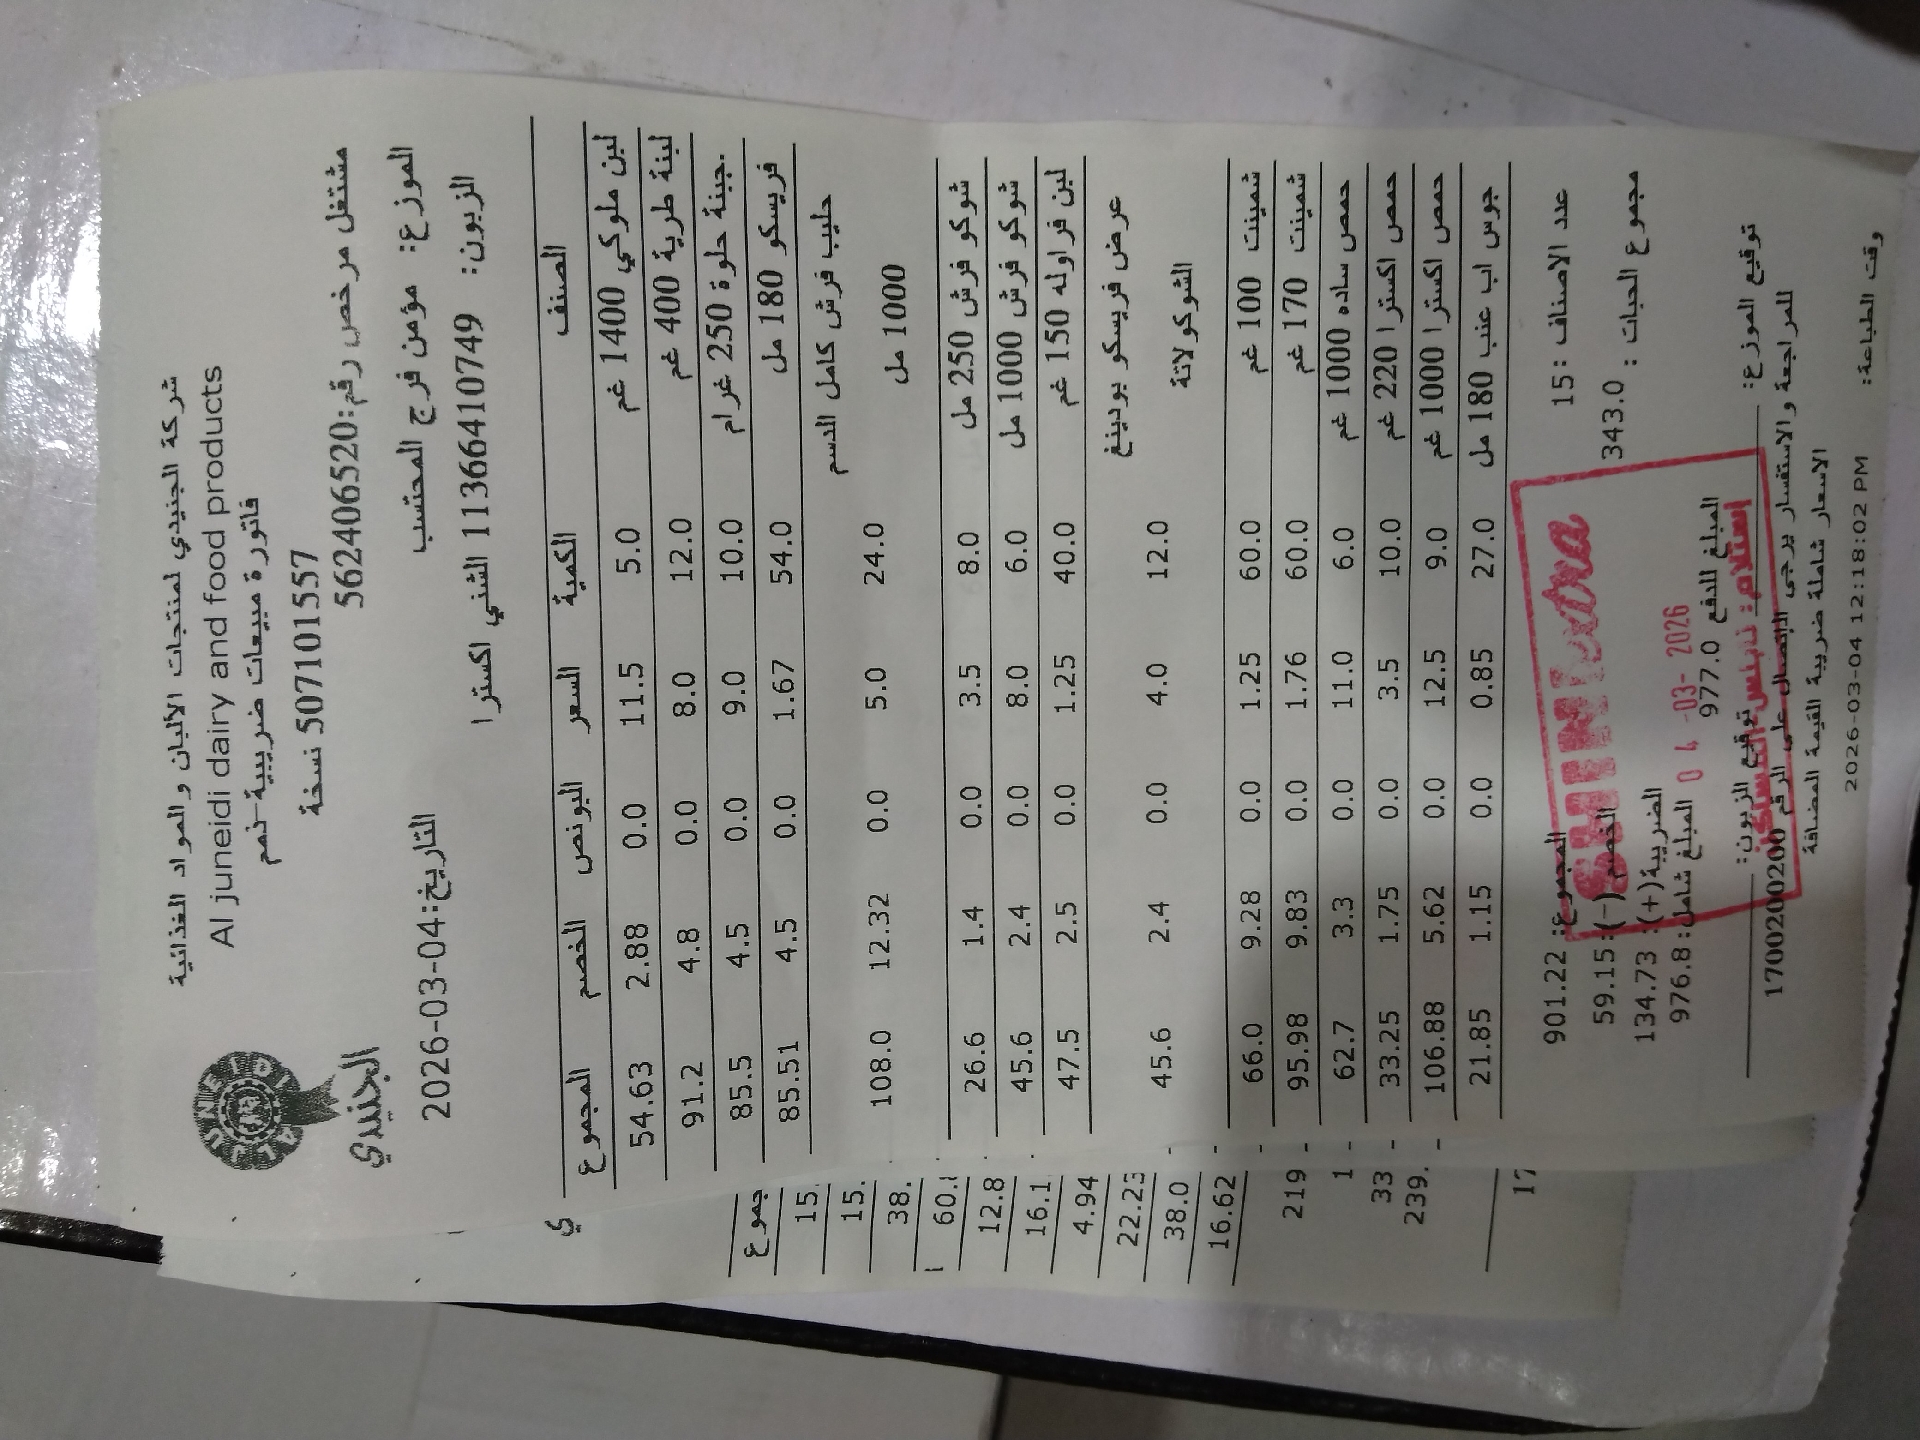 شركة الجنيدي لمنتجات الألبان والمواد الغذائية
Al juneidi dairy and food products
فاتورة مبيعات ضريبية-ذمم
507101557 نسخة
مشتغل مرخص رقم:562406520
AL JUNEIDI
الجنيدي
الموزع: مؤمن فرح المحتسب
التاريخ:2026-03-04
الزبون: 11366410749 الشني اكسترا
الصنف الكمية السعر البونص الخصم المجموع
لبن ملوكي 1400 غم 5.0 11.5 0.0 2.88 54.63
لبنة طرية 400 غم 12.0 8.0 0.0 4.8 91.2
جبنة حلوة 250 غرام 10.0 9.0 0.0 4.5 85.5
فريسكو 180 مل 54.0 1.67 0.0 4.5 85.51
حليب فرش كامل الدسم
1000 مل 24.0 5.0 0.0 12.32 108.0
شوكو فرش 250 مل 8.0 3.5 0.0 1.4 26.6
شوكو فرش 1000 مل 6.0 8.0 0.0 2.4 45.6
لبن فراوله 150 غم 40.0 1.25 0.0 2.5 47.5
عرض فريسكو بودينغ
الشوكولاتة 12.0 4.0 0.0 2.4 45.6
شمينت 100 غم 60.0 1.25 0.0 9.28 66.0
شمينت 170 غم 60.0 1.76 0.0 9.83 95.98
حمص ساده 1000 غم 6.0 11.0 0.0 3.3 62.7
حمص اكسترا 220 غم 10.0 3.5 0.0 1.75 33.25
حمص اكسترا 1000 غم 9.0 12.5 0.0 5.62 106.88
جوس اب عنب 180 مل 27.0 0.85 0.0 1.15 21.85
عدد الاصناف :15
المجموع: 901.22
مجموع الحبات : 343.0
الخصم(-):59.15
الضريبة(+): 134.73
المبلغ شامل:976.8
المبلغ للدفع 977.0
SHINI extra
0 4 -03- 2026
إستلام: نابلس-المساكن
توقيع الموزع:
توقيع الزبون:
للمراجعة والاستفسار يرجى الاتصال على الرقم 1700200200
الاسعار شاملة ضريبة القيمة المضافة
وقت الطباعة: 2026-03-04 12:18:02 PM
ي
جموع
15.
15.
38.
60.
12.8
16.1
4.94
22.23
38.0
16.62
219
1
33
239.
17